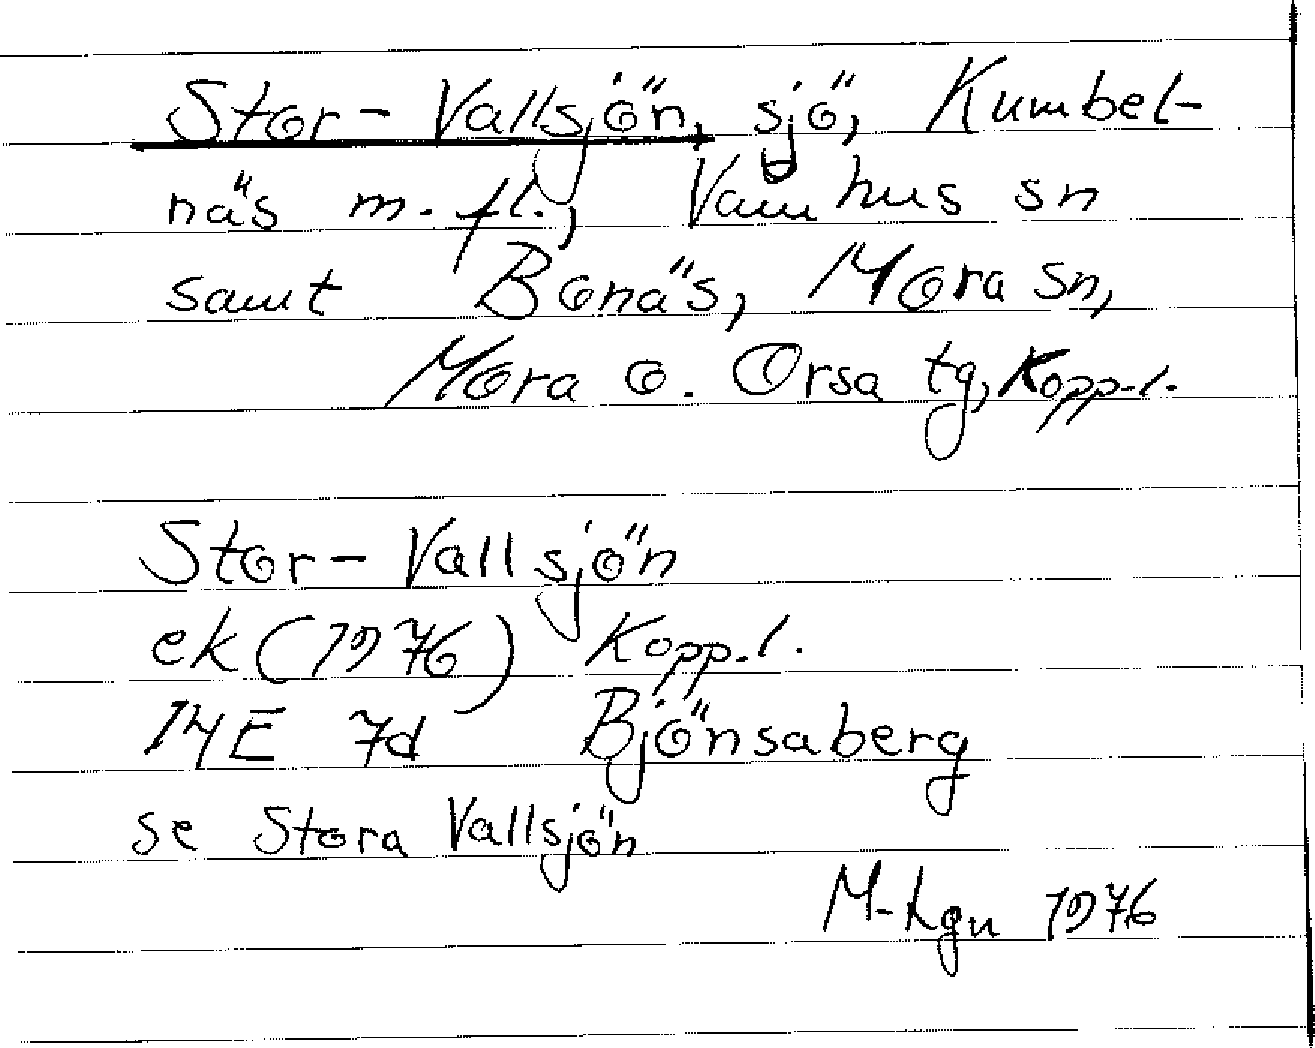 Stor-Vallsjön, sjö, Kumbel-
näs m.fl., Våmhus sn
samt Bonäs, Mora sn,
Mora o. Orsa tg, Kopp.l.
Stor-Vallsjön
ek (1976) Kopp.l.
14E 7d Björnsaberg
se Stora Vallsjön
1976